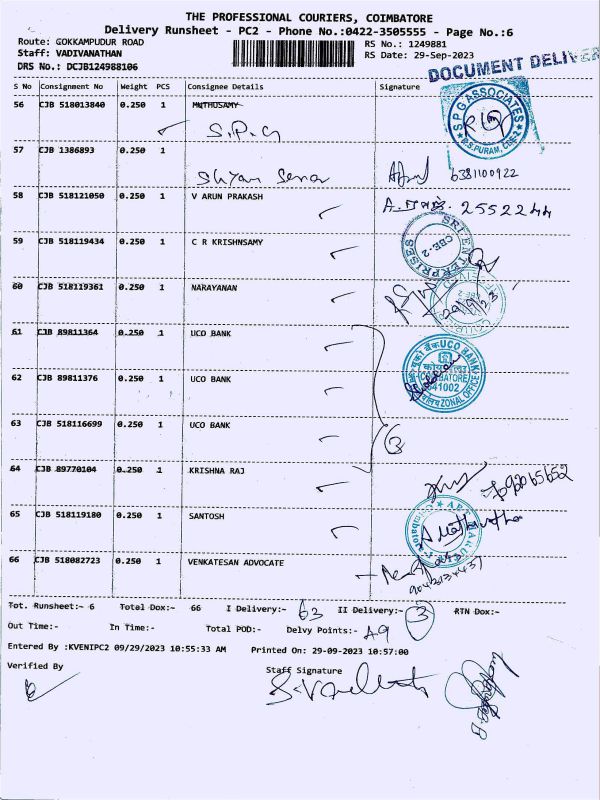 THE PROFESSIONAL COURIERS, COIMBATORE
Delivery Runsheet - PC2 - Phone No.:0422-3505555 - Page No.:6
Route: GOKKAMPUDUR ROAD
RS No.: 1249881
Staff: VADIVANATHAN
RS Date: 29-Sep-2023
DRS No.: DCJB124988106
DOCUMENT DELIVER
S No Consignment No Weight PCS Consignee Details Signature
56 CJB 518013840 0.250 1 MUTHUSAMY
S.P.G
S P G ASSOCIATES
R.S.PURAM, CBE-2
57 CJB 1386893 0.250 1
6381100922
58 CJB 518121050 0.250 1 V ARUN PRAKASH
2552244
59 CJB 518119434 0.250 1 C R KRISHNSAMY
SRI ENTERPRISES
CBE-2
60 CJB 518119361 0.250 1 NARAYANAN
29/9/23
61 CJB 89811364 0.250 1 UCO BANK
यूको बैंक UCO BANK
62 CJB 89811376 0.250 1 UCO BANK
COIMBATORE
641002
ZONAL OFFICE
63 CJB 518116699 0.250 1 UCO BANK
3
64 CJB 89770104 0.250 1 KRISHNA RAJ
65 CJB 518119180 0.250 1 SANTOSH
66 CJB 518082723 0.250 1 VENKATESAN ADVOCATE
Tot. Runsheet:~ 6 Total Dox:~ 66 I Delivery:~ 63 II Delivery:~ 3 RTN Dox:~
Out Time:- In Time:- Total POD:- Delvy Points:- 49
Entered By :KVENIPC2 09/29/2023 10:55:33 AM Printed On: 29-09-2023 10:57:00
Verified By
Staff Signature